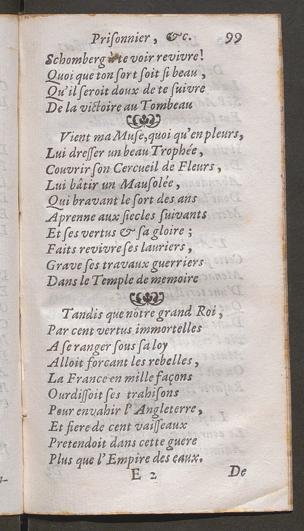 Priſonnier, &c. 99
Schomberg à te voir revivre!
Quoi que ton ſort ſoit ſi beau,
Qu'il ſeroit doux de te ſuivre
De la victoire au Tombeau
Vient ma Muſe, quoi qu'en pleurs,
Lui dreſſer un beau Trophée,
Couvrir ſon Cercueil de Fleurs,
Lui bâtir un Mauſolée,
Qui bravant le ſort des ans
Aprenne aux ſiecles ſuivants
Et ſes vertus & ſa gloire;
Faits revivre ſes lauriers,
Grave ſes travaux guerriers
Dans le Temple de memoire
Tandis que nôtre grand Roi,
Par cent vertus immortelles
A ſe ranger ſous ſa loy
Alloit forcant les rebelles,
La France en mille façons
Ourdiſſoit ſes trahiſons
Pour envahir l'Angleterre,
Et fiere de cent vaiſſeaux
Pretendoit dans cette guere
Plus que l'Empire des eaux.
E 2 De